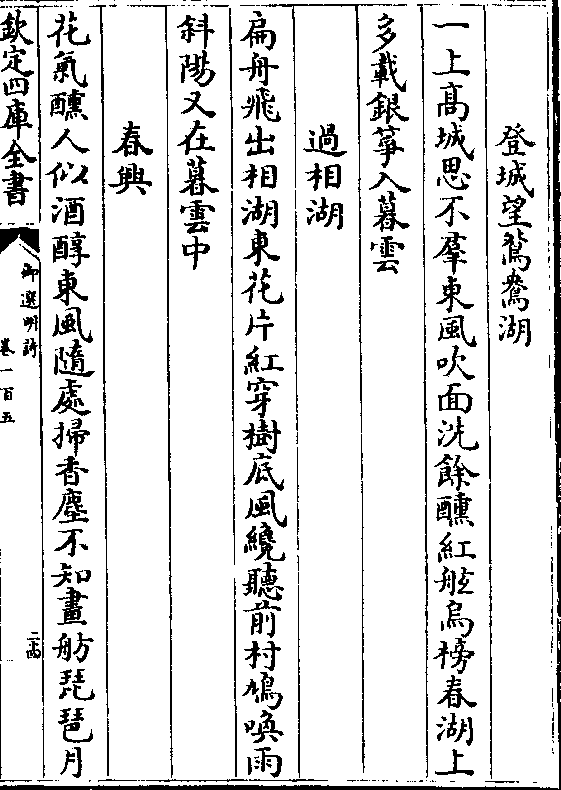 登城望鴛鴦湖
一上髙城思不羣東風吹面洗餘醺紅舷烏榜春湖上
多載銀箏入暮雲
過相湖
扁舟飛出相湖東花片紅穿樹底風纔聽前村鳩喚雨
斜陽又在暮雲中
春興
花氣醺人似酒醇東風隨處掃香塵不知畫舫琵琶月
欽定四庫全書
御選明詩
卷一百五
二高